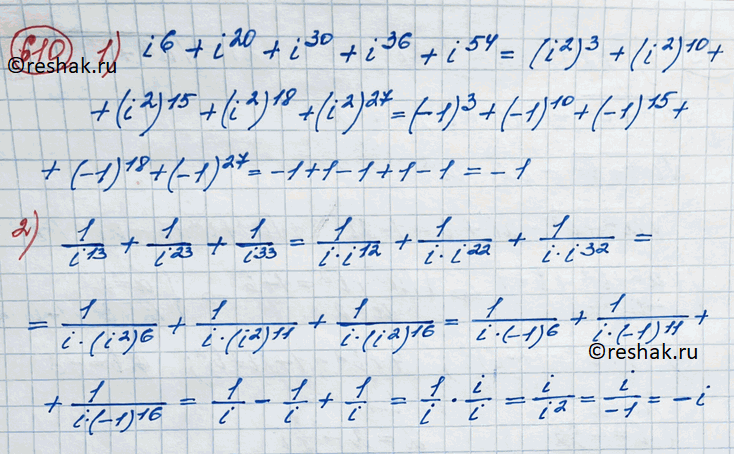 610 1) i⁶ + i²⁰ + i³⁰ + i³⁶ + i⁵⁴ = (i²)³ + (i²)¹⁰ +
©reshak.ru
+ (i²)¹⁵ + (i²)¹⁸ + (i²)²⁷ = (-1)³ + (-1)¹⁰ + (-1)¹⁵ +
+ (-1)¹⁸ + (-1)²⁷ = -1 + 1 - 1 + 1 - 1 = -1
2) 1/i¹³ + 1/i²³ + 1/i³³ = 1/(i·i¹²) + 1/(i·i²²) + 1/(i·i³²) =
= 1/(i·(i²)⁶) + 1/(i·(i²)¹¹) + 1/(i·(i²)¹⁶) = 1/(i·(-1)⁶) + 1/(i·(-1)¹¹) +
©reshak.ru
+ 1/(i·(-1)¹⁶) = 1/i - 1/i + 1/i = 1/i · i/i = i/i² = i/-1 = -i